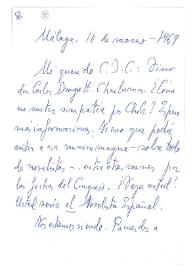 Málaga. 10 de marzo - 1969
Mi querido C.J.C.: Vino
don Carlos Droguett. Charlamos. ¿Cómo
no sentir simpatía por Chile? Espero
mis informaciones. Si veo que podía
asistir a esa reunión magna - sobre todo
de novelistas -, entre otras razones por
las fechas del Congreso. ¿Vaya usted?
Usted sería el Novelista Español.
Nos estamos viendo. Recuerdos a